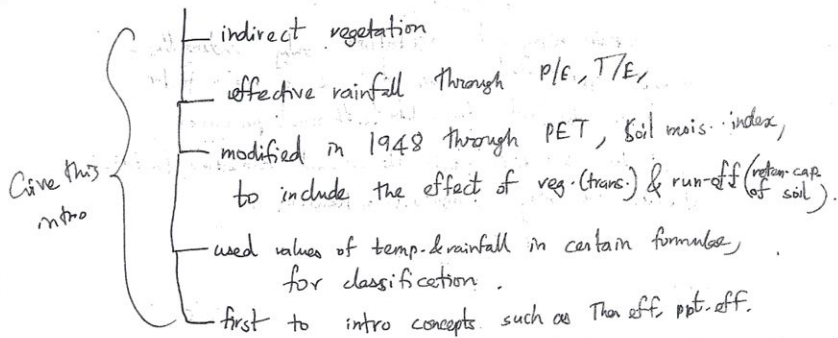 indirect vegetation
effective rainfall through P/E, T/E,
modified in 1948 through PET, Soil mois. index,
to include the effect of veg. (trans.) & run-off (retan. cap. of soil).
Give this intro
used values of temp. & rainfall in certain formulae,
for classification.
first to intro concepts such as Ther eff, ppt. eff.